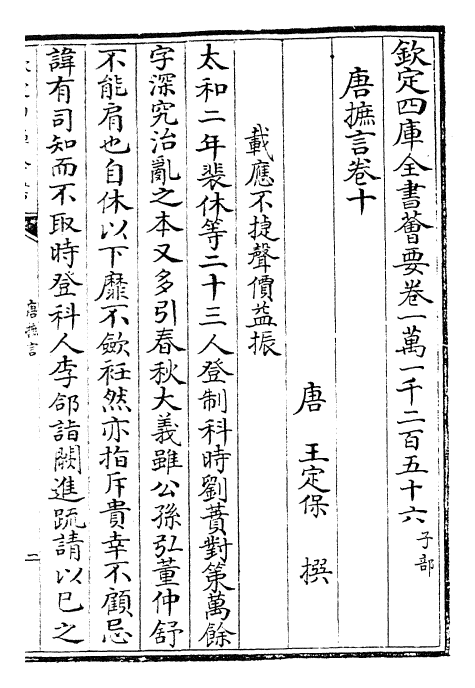 欽定四庫全書薈要卷一萬一千二百五十六 子部
唐摭言卷十
唐 王定保 撰
載應不捷聲價益振
太和二年裴休等二十三人登制科時劉蕡對策萬餘
字深究治亂之本又多引春秋大義雖公孫弘董仲舒
不能肩也自休以下靡不歛衽然亦指斥貴幸不顧忌
諱有司知而不取時登科人李郃詣闕進疏請以已之
唐摭言